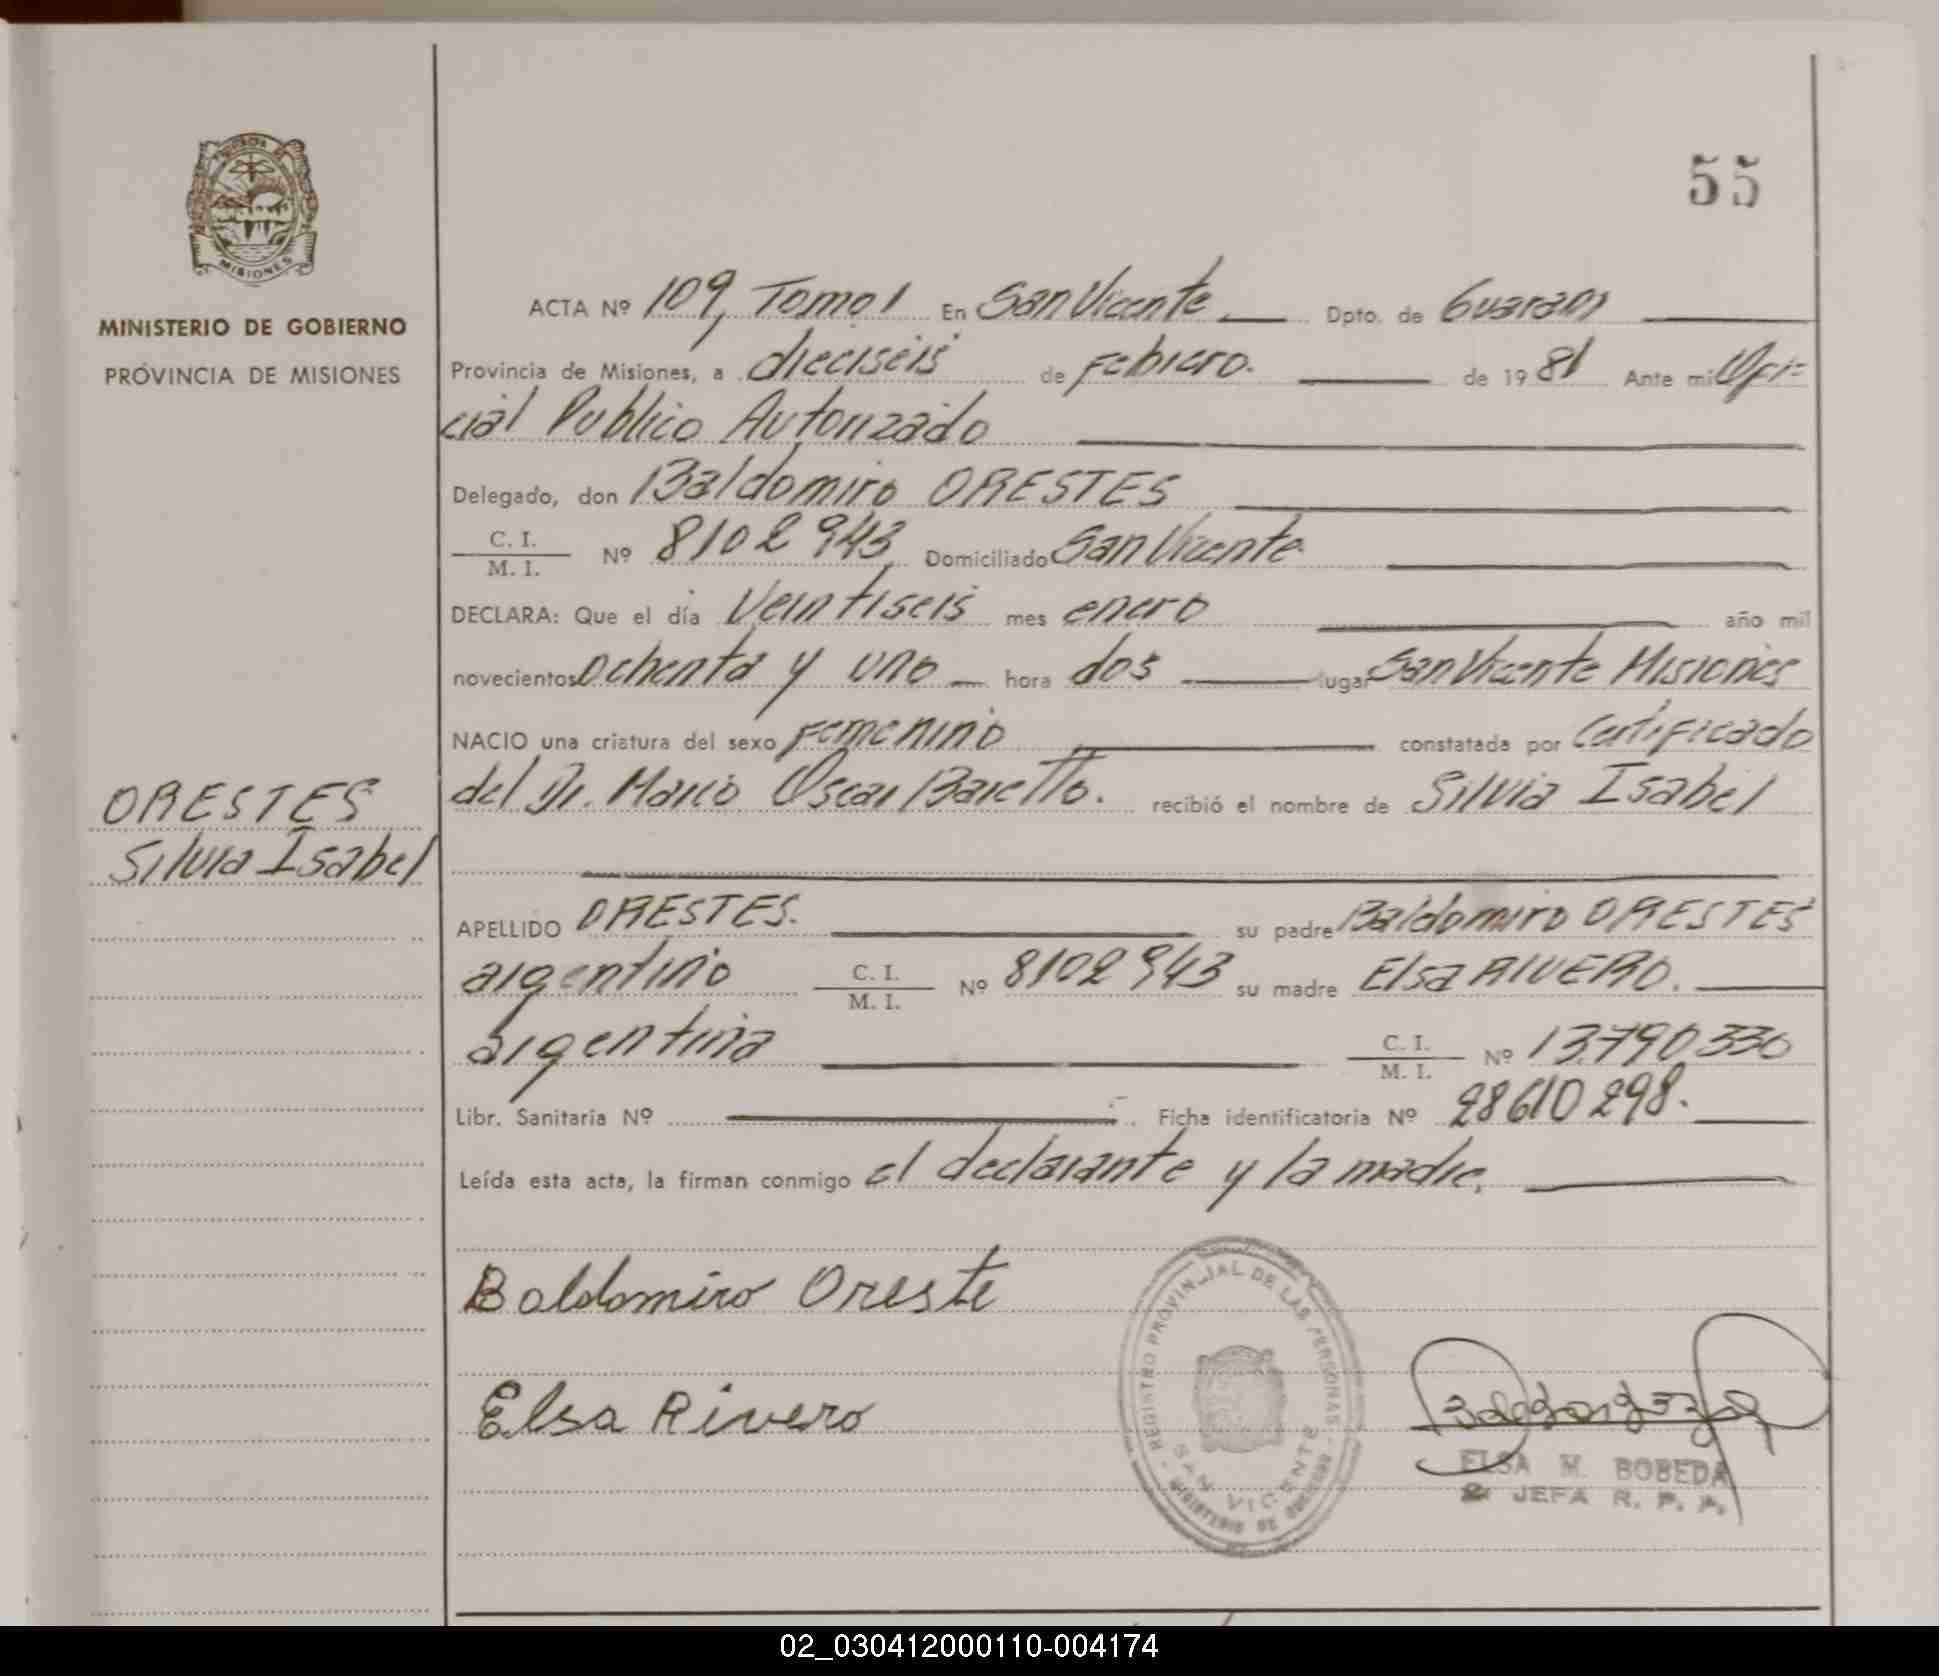 PROVINCIA DE
MISIONES
MINISTERIO DE GOBIERNO
PROVINCIA DE MISIONES
ORESTES
Silvia Isabel
55
ACTA Nº 109, Tomo 1 En San Vicente Dpto. de Guarani
Provincia de Misiones, a dieciseis de Febrero. de 19 81 Ante mi Ofi=
cial Publico Autorizado
Delegado, don Baldomiro ORESTES
C. I.
M. I. Nº 8102943 Domiciliado San Vicente
DECLARA: Que el día Veintiseis mes enero año mil
novecientos ochenta y uno hora dos lugar San Vicente Misiones
NACIO una criatura del sexo Femenino constatada por Certificado
del Dr. Mario Oscar Baretto. recibió el nombre de Silvia Isabel
APELLIDO ORESTES. su padre Baldomiro ORESTES
argentino C. I. M. I. Nº 8102943 su madre Elsa RIVERO.
argentina C. I. M. I. Nº 13.790.330
Libr. Sanitaria Nº Ficha identificatoria Nº 28610298.
Leída esta acta, la firman conmigo el declarante y la madre.
Baldomiro Oreste
Elsa Rivero
REGISTRO PROVINCIAL DE LAS PERSONAS
SAN VICENTE
MINISTERIO DE GOBIERNO
ELSA M. BOBEDA
JEFA R. P. P.
02_030412000110-004174